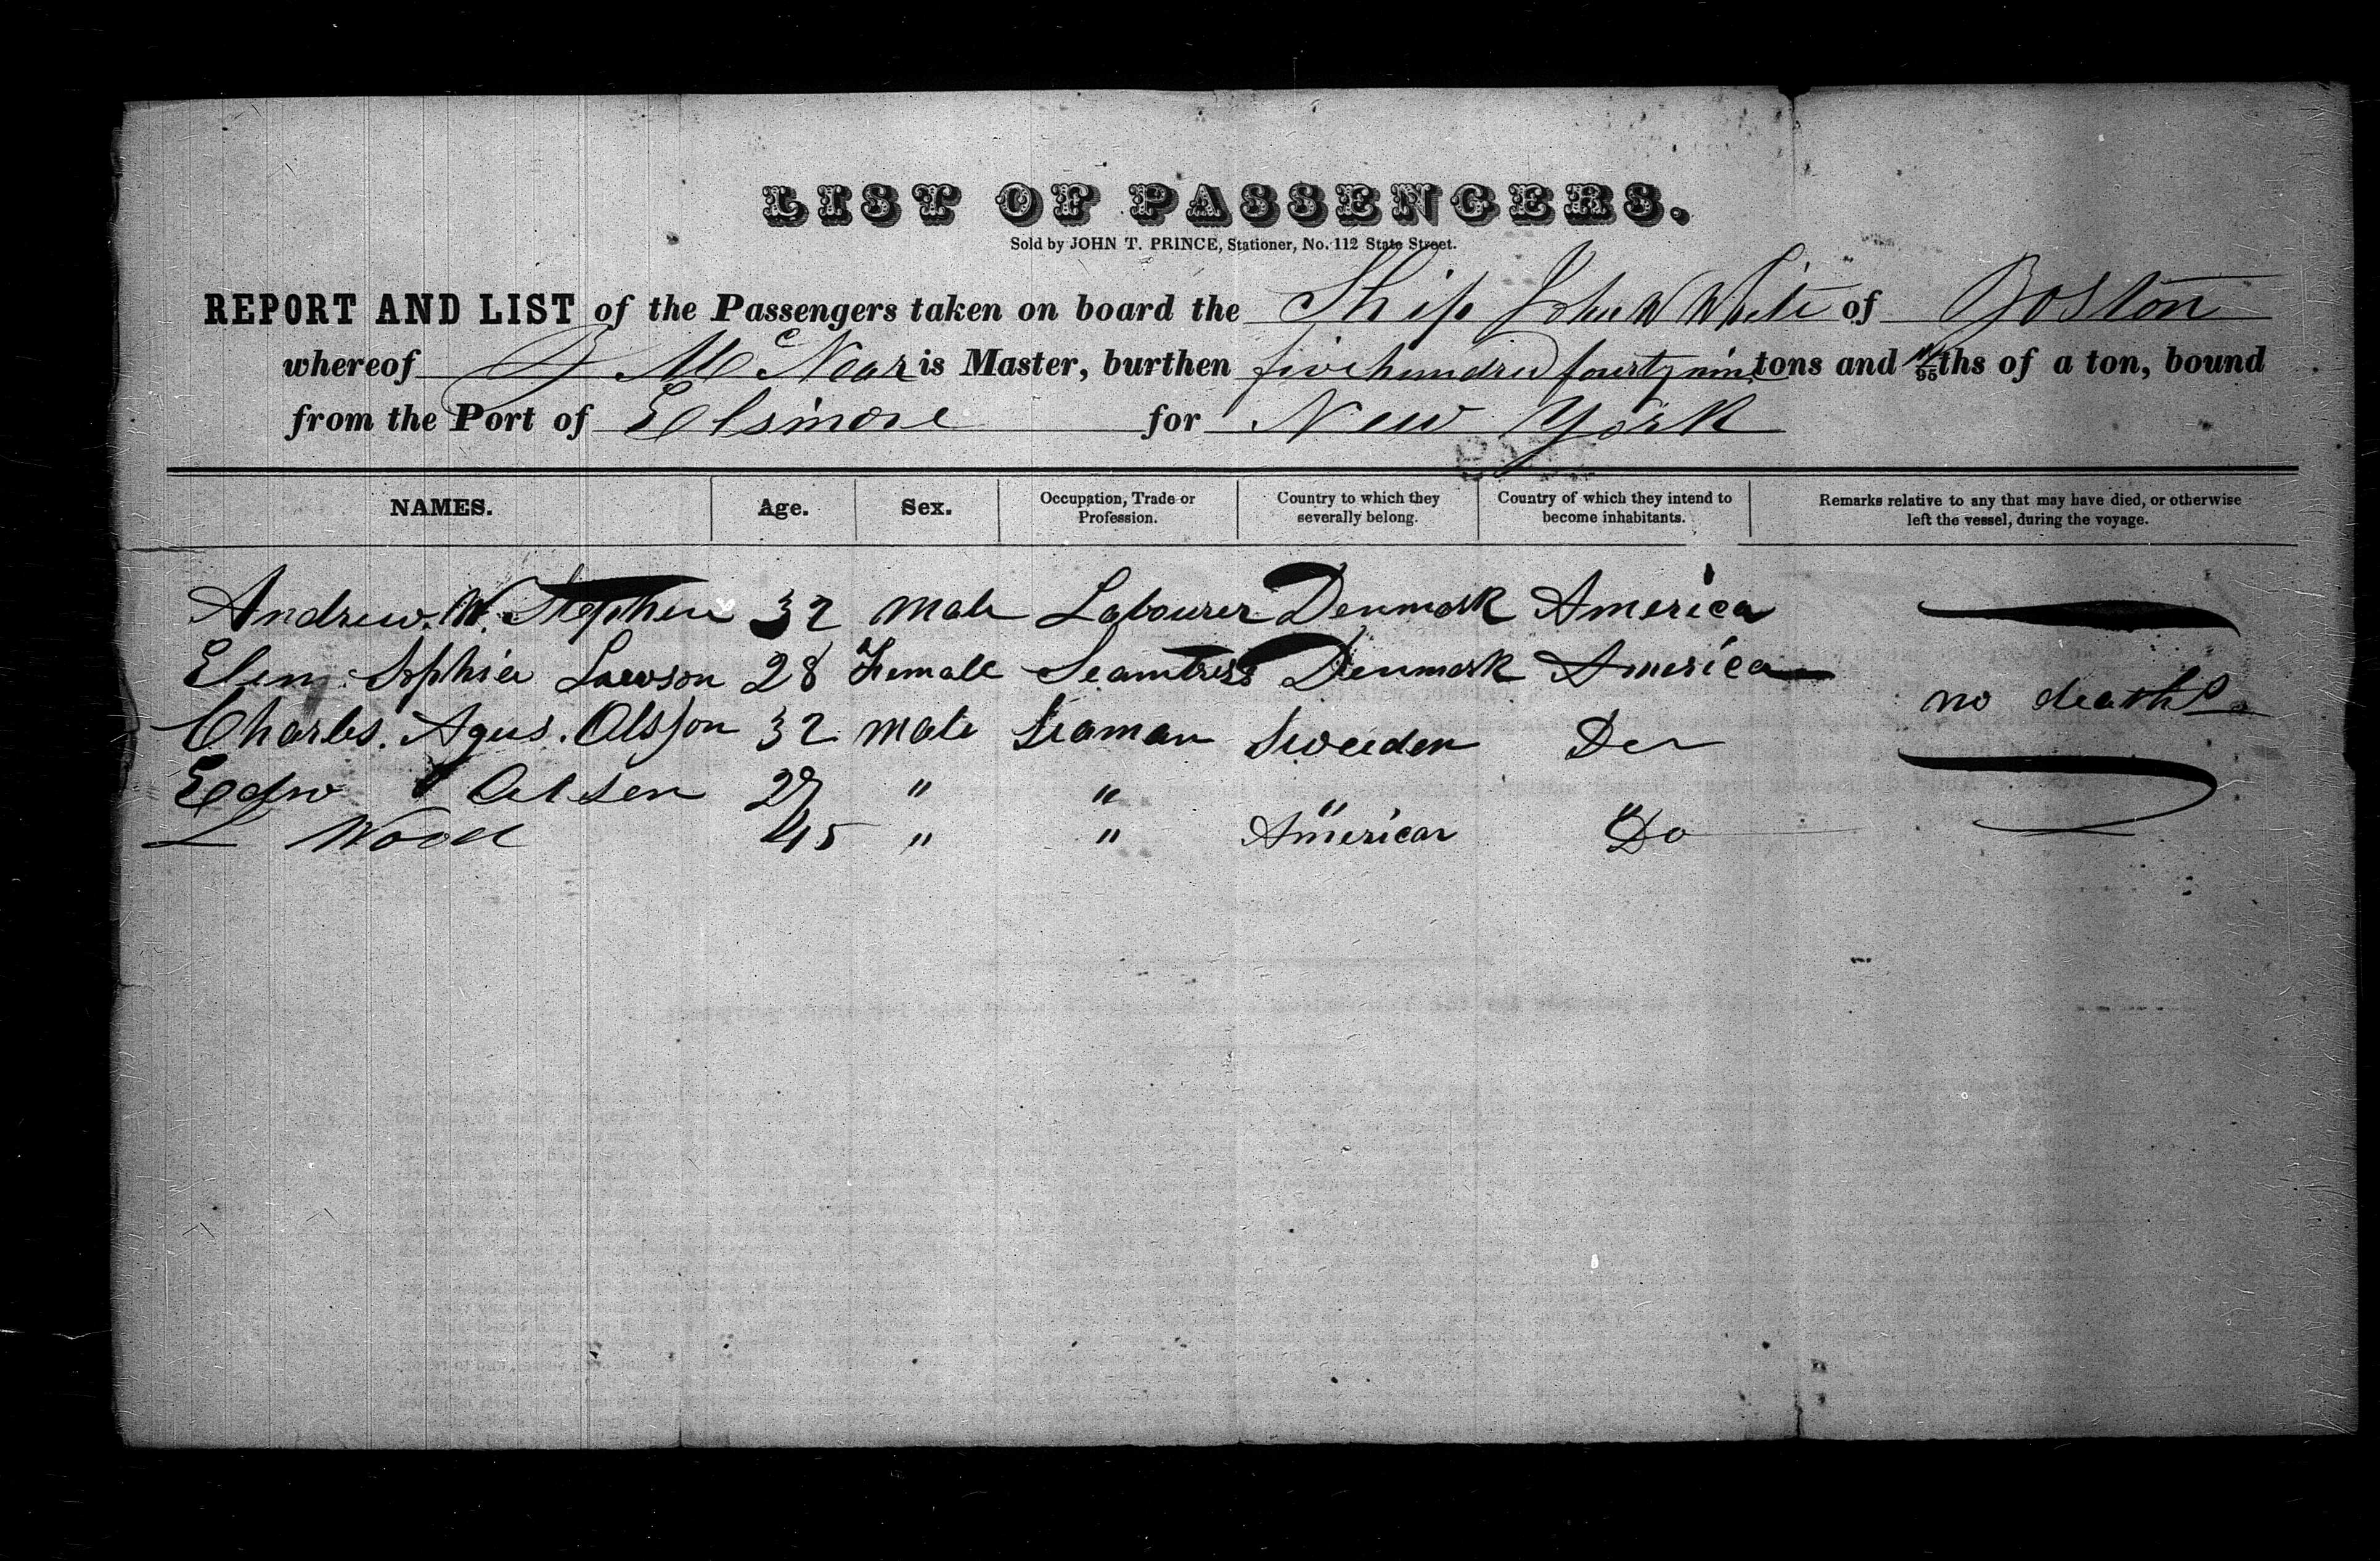 LIST OF PASSENGERS.
Sold by JOHN T. PRINCE, Stationer, No. 112 State Street.
REPORT AND LIST of the Passengers taken on board the Ship John W White of Boston
whereof B McNear is Master, burthen five hundred fourty nine tons and /95ths of a ton, bound
from the Port of Elsinore for New York
NAMES. Age. Sex. Occupation, Trade or Profession. Country to which they severally belong. Country of which they intend to become inhabitants. Remarks relative to any that may have died, or otherwise left the vessel, during the voyage.
Andrew. W. Stephen 32 male Labourer Denmark America
Elen Sophia Lawson 28 Female Seamtress Denmark America
no deaths
Charles. Agus. Olsson 32 male Seaman Sweeden Do
Edw Olsen 27 " " " "
L Wood 45 " " American Do